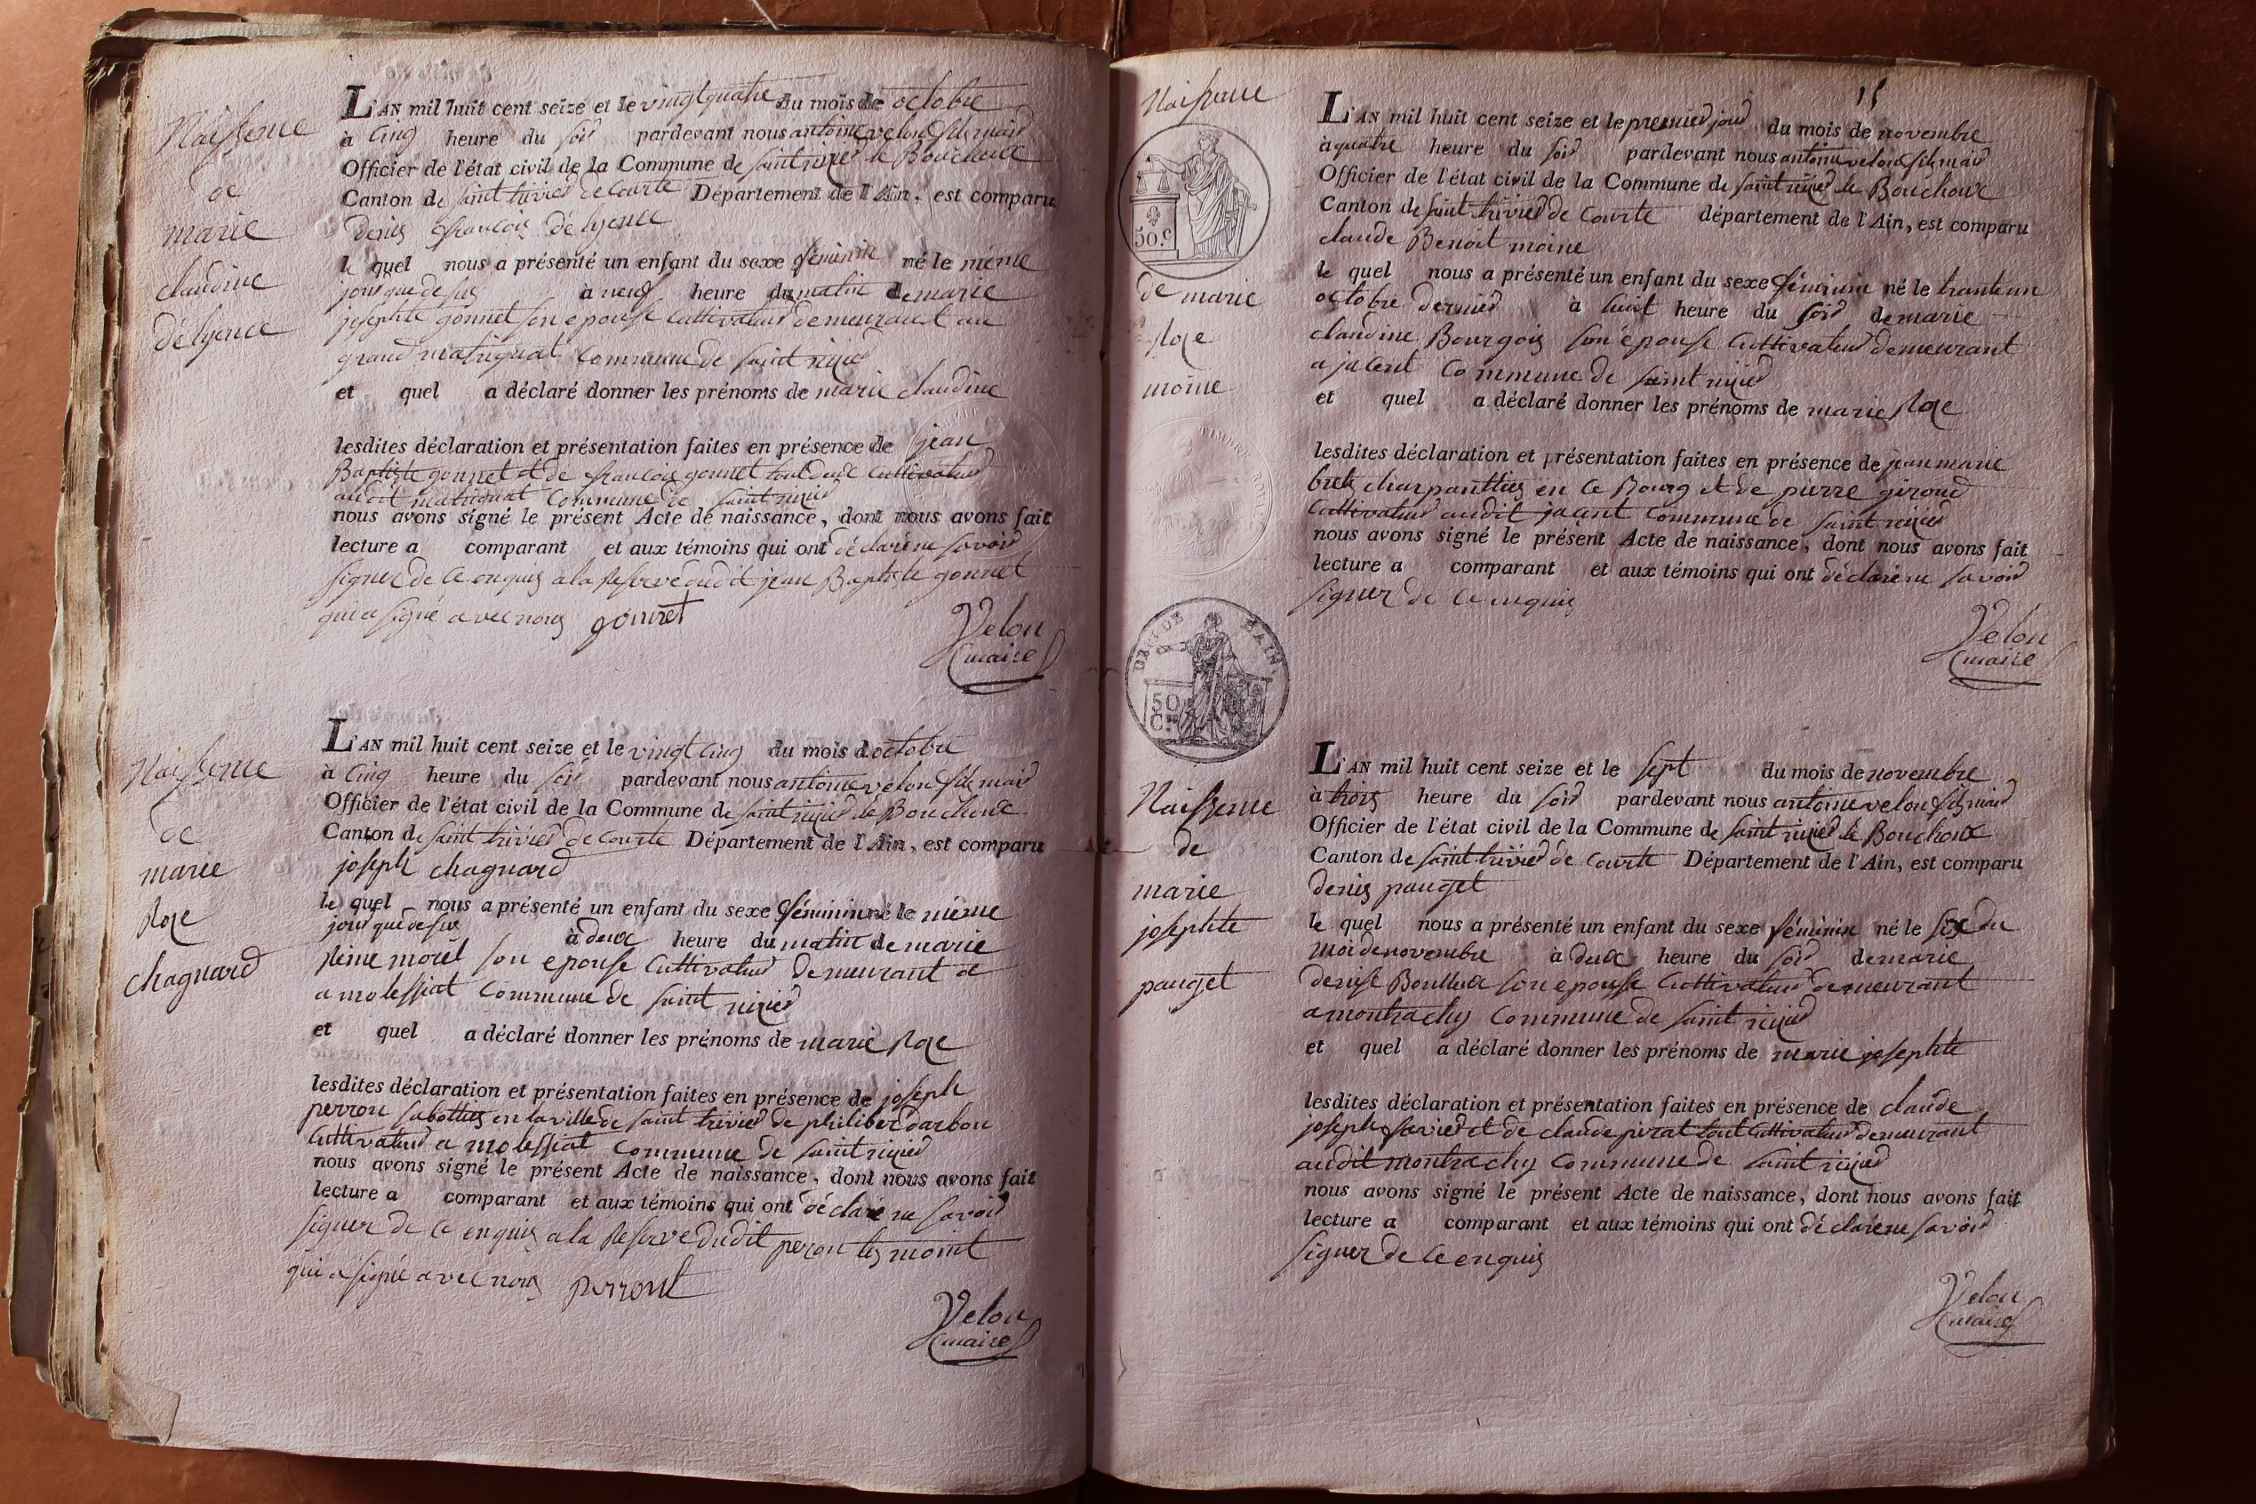 Naissence
de
marie
claudine
délyence
L'AN mil huit cent seize et le vingt quatre du mois de octobre
à cinq heure du soir pardevant nous antoine velon fils maire
Officier de l'état civil de la Commune de saint nizier le Bouchoux
Canton de saint trivier de Courte Département de l'Ain, est comparu
denis francois délyence
le quel nous a présenté un enfant du sexe féminin né le même
jour que desus à neuf heure du matin de marie
josephte gonnet son epouse Cultivateur demeurant au
grand matignat Commune de saint nizier
et quel a déclaré donner les prénoms de marie claudine
lesdites déclaration et présentation faites en présence de jean
Baptiste gonnet et de francois gonnet tout deux Cultivateur
audit matignat Commune de saint nizier
nous avons signé le présent Acte de naissance, dont nous avons fait
lecture a comparant et aux témoins qui ont déclaré ne savoir
signer de ce enquis a la Reserve dudit jean Baptiste gonnet
qui a signé avec nous gonnet
Velon
maire
Naissence
de
marie
Roze
chagnard
L'AN mil huit cent seize et le vingt cinq du mois d. octobre
à Cinq heure du soir pardevant nous antoine velon fils maire
Officier de l'état civil de la Commune de saint nizier le Bouchoux
Canton de saint trivier de Courte Département de l'Ain, est comparu
joseph chagnard
le quel nous a présenté un enfant du sexe féminin né le même
jour que desus à deux heure du matin de marie
Reine morel son epouse Cultivateur demeurant a
a molessiat Commune de saint nizier
et quel a déclaré donner les prénoms de marie Roze
lesdites déclaration et présentation faites en présence de joseph
perron sabottier en la ville de saint trivier de philiber darbon
Cultivateur a molessiat Commune de saint nizier
nous avons signé le présent Acte de naissance, dont nous avons fait
lecture a comparant et aux témoins qui ont déclaré ne savoir
signer de ce enquis a la Reserve dudit peron temoint
qui a signé avec nous perront
Velon
maire
15
Naissence
50.c
de marie
Roze
moine
L'AN mil huit cent seize et le premier jour du mois de novembre
à quatre heure du soir pardevant nous antoine velon fils maire
Officier de l'état civil de la Commune de saint nizier le Bouchoux
Canton de saint trivier de Courte département de l'Ain, est comparu
claude Benoit moine
le quel nous a présenté un enfant du sexe féminin né le trante un
octobre dernier à huit heure du soir de marie
claudine Bourgois son épouse Cultivateur demeurant
a jacent Commune de saint nizier
et quel a déclaré donner les prénoms de marie Roze
lesdites déclaration et présentation faites en présence de jean marie
charpanttier en ce Bourg et de pierre giroud
Cultivateur audit jacent Commune de saint nizier
nous avons signé le présent Acte de naissance, dont nous avons fait
lecture a comparant et aux témoins qui ont déclaré ne savoir
signer de ce enquis
Velon
maire
50
C.
Naissence
de
marie
josephte
pauget
L'AN mil huit cent seize et le sept du mois de novembre
à trois heure du soir pardevant nous antoine velon fils maire
Officier de l'état civil de la Commune de saint nizier le Bouchoux
Canton de saint trivier de Courte Département de l'Ain, est comparu
denis pauget
le quel nous a présenté un enfant du sexe féminin né le six du
moi de novembre à deux heure du soir de marie
denise son epouse Cultivateur demeurant
a montrachy Commune de saint nizier
et quel a déclaré donner les prénoms de marie josephte
lesdites déclaration et présentation faites en présence de claude
joseph favier et de claude pirat tout Cultivateur demeurant
audit montrachy Commune de saint nizier
nous avons signé le présent Acte de naissance, dont nous avons fait
lecture a comparant et aux témoins qui ont déclaré ne savoir
signer de ce enquis
Velon
maire